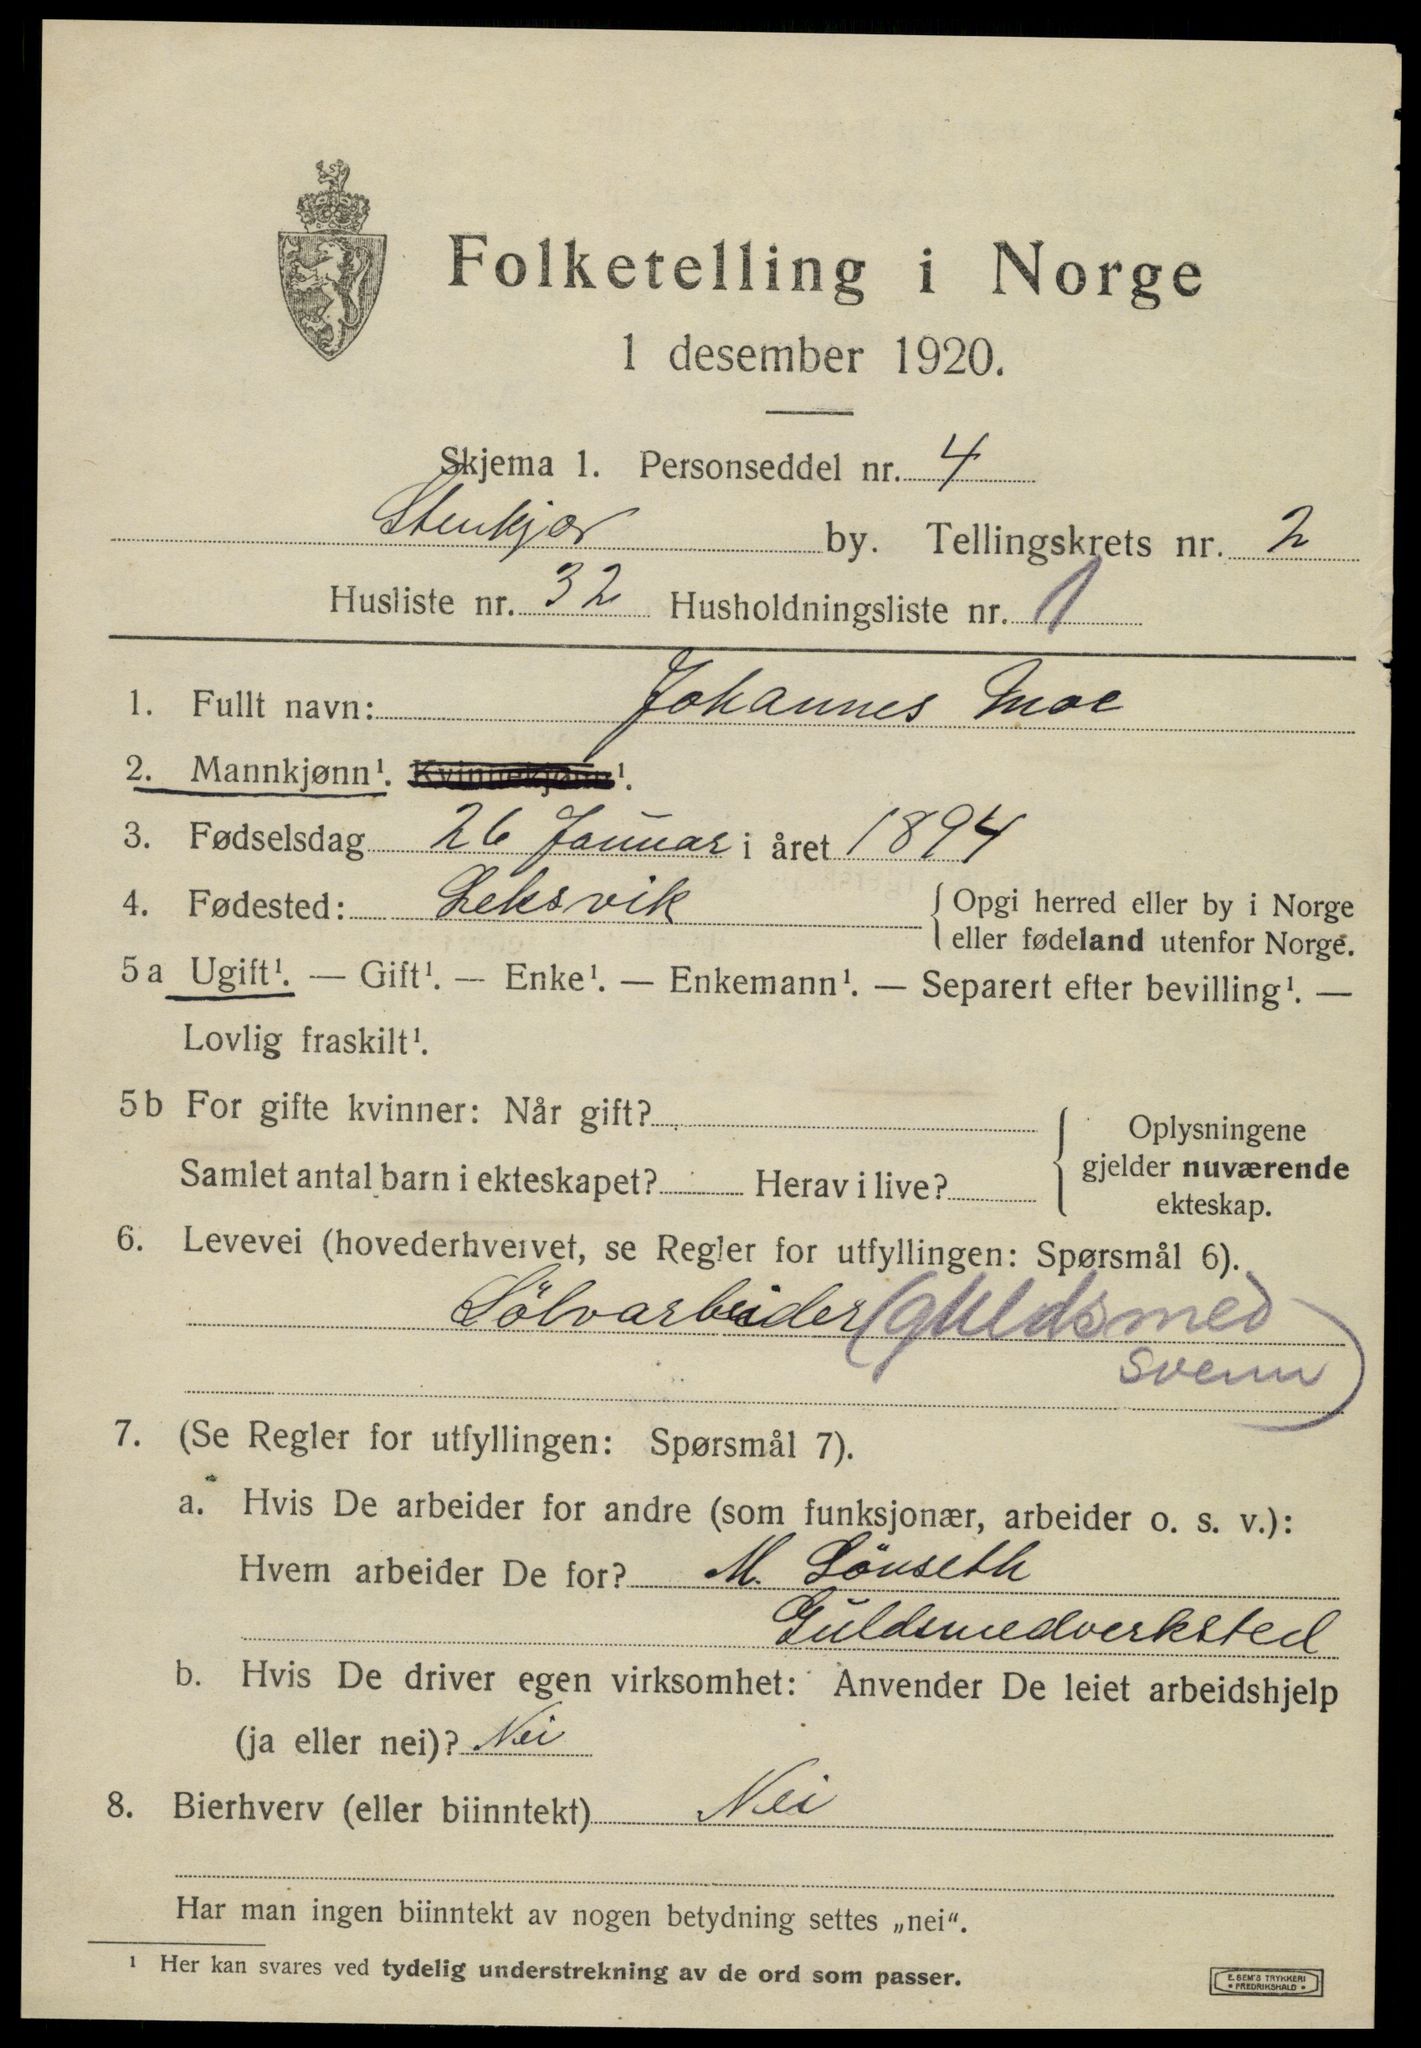 Folketelling i Norge
1 desember 1920.
Skjema 1. Personseddel nr. 4
Stenkjær by. Tellingskrets nr. 2
Husliste nr. 32 Husholdningsliste nr. 1
1. Fullt navn: Johannes Moe
2. Mannkjønn¹. Kvinnekjønn¹.
3. Fødselsdag 26 Januar i året 1894
4. Fødested: Leksvik { Opgi herred eller by i Norge
eller fødeland utenfor Norge.
5 a Ugift¹. — Gift¹. — Enke¹. — Enkemann¹. — Separert efter bevilling¹. —
Lovlig fraskilt¹.
5 b For gifte kvinner: Når gift?
Samlet antal barn i ekteskapet? Herav i live?
{ Oplysningene
gjelder nuværende
ekteskap.
6. Levevei (hovederhvervet, se Regler for utfyllingen: Spørsmål 6).
Sölvarbeider (Guldsmed
svenn)
7. (Se Regler for utfyllingen: Spørsmål 7).
a. Hvis De arbeider for andre (som funksjonær, arbeider o. s. v.):
Hvem arbeider De for? M. Lönseth
Guldsmedverksted
b. Hvis De driver egen virksomhet: Anvender De leiet arbeidshjelp
(ja eller nei)? Nei
8. Bierhverv (eller biinntekt) Nei
Har man ingen biinntekt av nogen betydning settes „nei“.
¹ Her kan svares ved tydelig understrekning av de ord som passer.
E. SEM'S TRYKKERI
• FREDRIKSHALD •